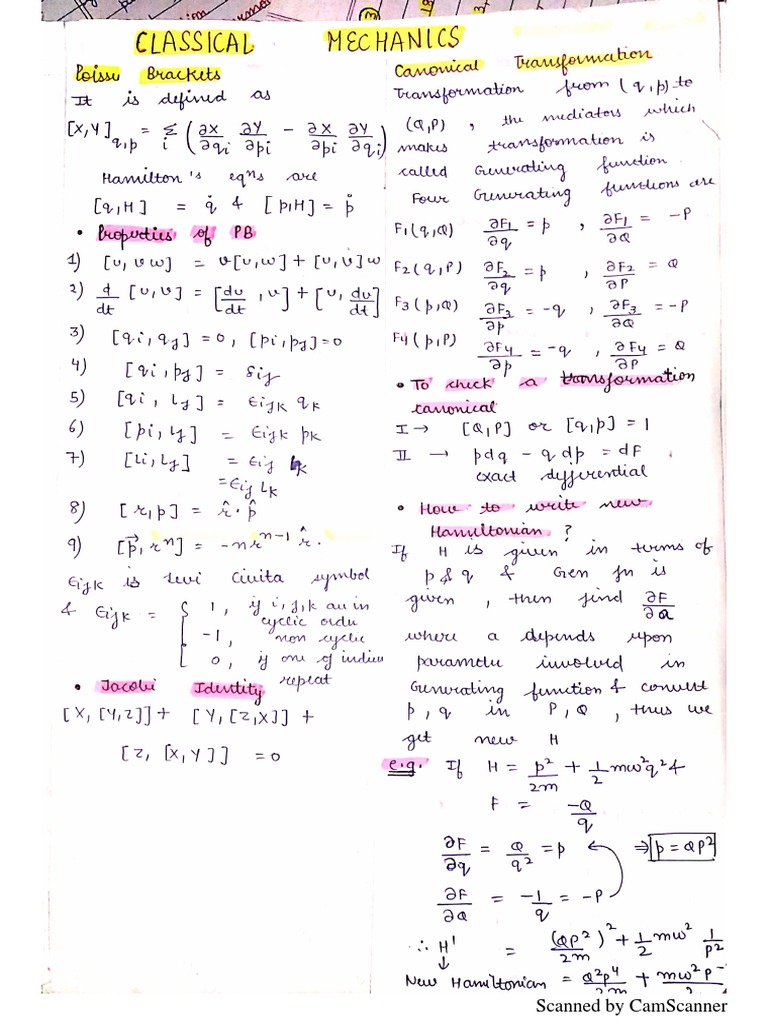 CLASSICAL MECHANICS
Poisson Brackets
It is defined as
[X,Y]q,p = Σi (∂X/∂qi ∂Y/∂pi − ∂X/∂pi ∂Y/∂qi)
Hamilton's eqns are
[q,H] = q̇ & [p,H] = ṗ
• Properties of PB
1) [u, vw] = v[u,w] + [u,v]w
2) d/dt [u,v] = [du/dt, v] + [u, dv/dt]
3) [qi, qj] = 0, [pi, pj] = 0
4) [qi, pj] = δij
5) [qi, Lj] = ϵijk qk
6) [pi, Lj] = ϵijk pk
7) [Li, Lj] = ϵij Lk
= ϵij Lk
8) [r, p] = r̂ · p̂
9) [p⃗, rⁿ] = −nrⁿ⁻¹ r̂.
ϵijk is levi Civita symbol
& ϵijk = { 1, if i,j,k are in
cyclic order
−1, non cyclic
0, if one of indices
repeat
• Jacobi Identity
[X, [Y,Z]] + [Y, [Z,X]] +
[Z, [X,Y]] = 0
Canonical Transformation
Transformation from (q,p) to
(Q,P), the mediators which
makes transformation is
called Generating function
Four Generating functions are
F1(q,Q) ∂F1/∂q = p, ∂F1/∂Q = −P
F2(q,P) ∂F2/∂q = p, ∂F2/∂P = Q
F3(p,Q) ∂F3/∂p = −q, ∂F3/∂Q = −P
F4(p,P) ∂F4/∂p = −q, ∂F4/∂P = Q
• To check a transformation
canonical
I → [Q,P] or [q,p] = 1
II → pdq − qdp = dF
exact differential
• How to write new
Hamiltonian ?
If H is given in terms of
p & q & Gen fn is
given, then find ∂F/∂Q
where a depends upon
parameter involved in
Generating function & convert
p, q in P, Q, thus we
get new H
e.g. If H = p²/2m + 1/2 mω²q² &
F = −Q/q
∂F/∂q = Q/q² = p ⇒ p = QP²
∂F/∂Q = −1/q = −P
∴ H' = (QP²)²/2m + 1/2 mω² 1/P²
↓
New Hamiltonian = Q²P⁴/2m + mω²P⁻/2
Scanned by CamScanner